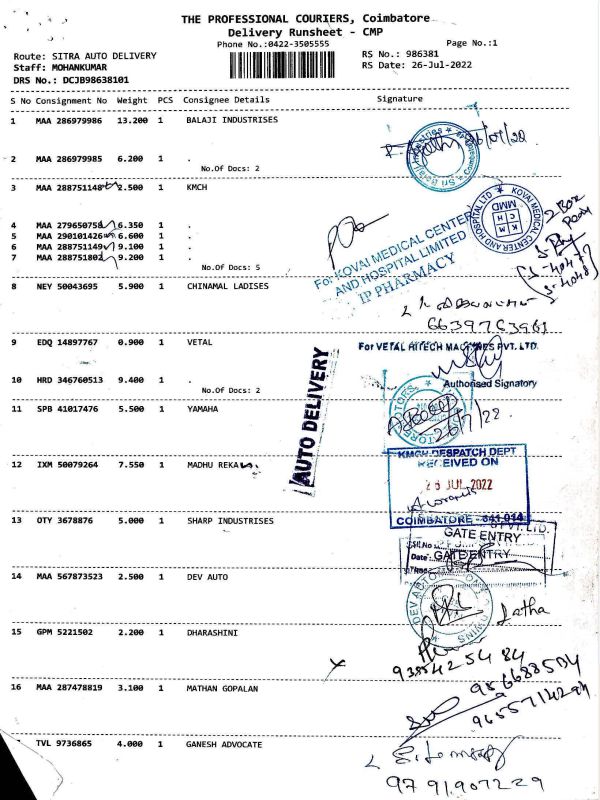 THE PROFESSIONAL COURIERS, Coimbatore
Delivery Runsheet - CMP
Phone No.:0422-3505555
Page No.:1
Route: SITRA AUTO DELIVERY
RS No.: 986381
Staff: MOHANKUMAR
RS Date: 26-Jul-2022
DRS No.: DCJB98638101
S No Consignment No Weight PCS Consignee Details Signature
1 MAA 286979986 13.200 1 BALAJI INDUSTRISES
2 MAA 286979985 6.200 1 .
No.Of Docs: 2
3 MAA 288751148 2.500 1 KMCH
KOVAI MEDICAL CENTER AND HOSPITAL LTD
KMCH
MMD
2 Box
4 MAA 279650758 6.350 1 .
5 MAA 290101426 6.600 1 .
6 MAA 288751149 9.100 1 .
7 MAA 288751802 9.200 1 .
No.Of Docs: 5
For KOVAI MEDICAL CENTER
AND HOSPITAL LIMITED
IP PHARMACY
S-4047
S-4048
8 NEY 50043695 5.900 1 CHINAMAL LADISES
6639763961
9 EDQ 14897767 0.900 1 VETAL
For VETAL HITECH MACHINES PVT. LTD.
Authorised Signatory
10 HRD 346760513 9.400 1 .
No.Of Docs: 2
AUTO DELIVERY
11 SPB 41017476 5.500 1 YAMAHA
26/7/22.
KMCH DESPATCH DEPT
RECEIVED ON
12 IXM 50079264 7.550 1 MADHU REKA
26 JUL 2022
COIMBATORE - 641 014
13 OTY 3678876 5.000 1 SHARP INDUSTRISES
PVT. LTD.
GATE ENTRY
Date:
GATE ENTRY
14 MAA 567873523 2.500 1 DEV AUTO
Latha
15 GPM 5221502 2.200 1 DHARASHINI
16 MAA 287478819 3.100 1 MATHAN GOPALAN
TVL 9736865 4.000 1 GANESH ADVOCATE
9791907229